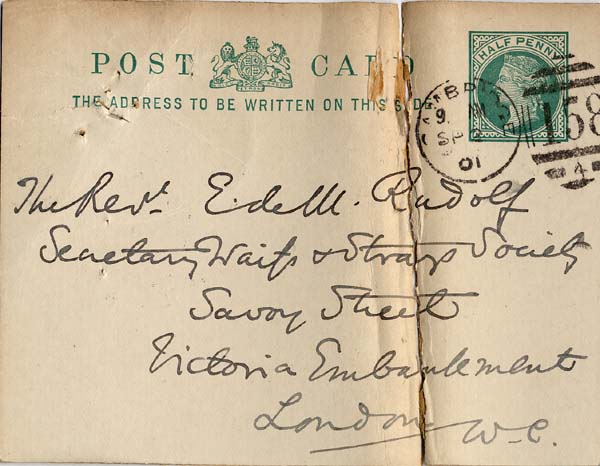 POST CARD
THE ADDRESS TO BE WRITTEN ON THIS SIDE
HALF PENNY
9
SP
01
158
4
The Revt. E. de M. Rudolf
Secretary Waifs & Strays Society
Savoy Street
Victoria Embankment
London W.C.